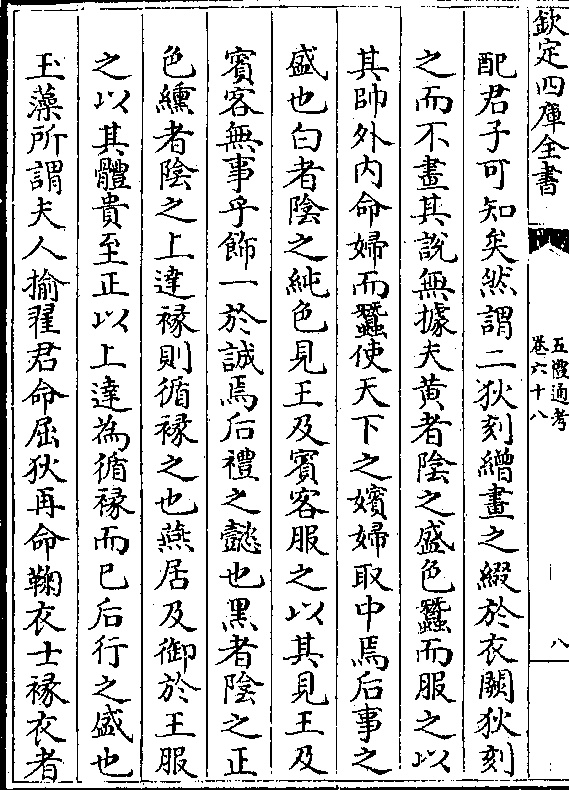 欽定四庫全書
五禮通考
卷六十八
八
配君子可知矣然謂二狄刻繒畫之綴於衣闕狄刻
之而不畫其說無據夫黄者陰之盛色蠶而服之以
其帥外内命婦而蠶使天下之嬪婦取中焉后事之
盛也白者陰之純色見王及賓客服之以其見王及
賓客無事乎飾一於誠焉后禮之懿也黒者陰之正
色纁者陰之上達褖則循褖之也燕居及御於王服
之以其體貴至正以上達為循褖而已后行之盛也
玉藻所謂夫人揄翟君命屈狄再命鞠衣士褖衣者